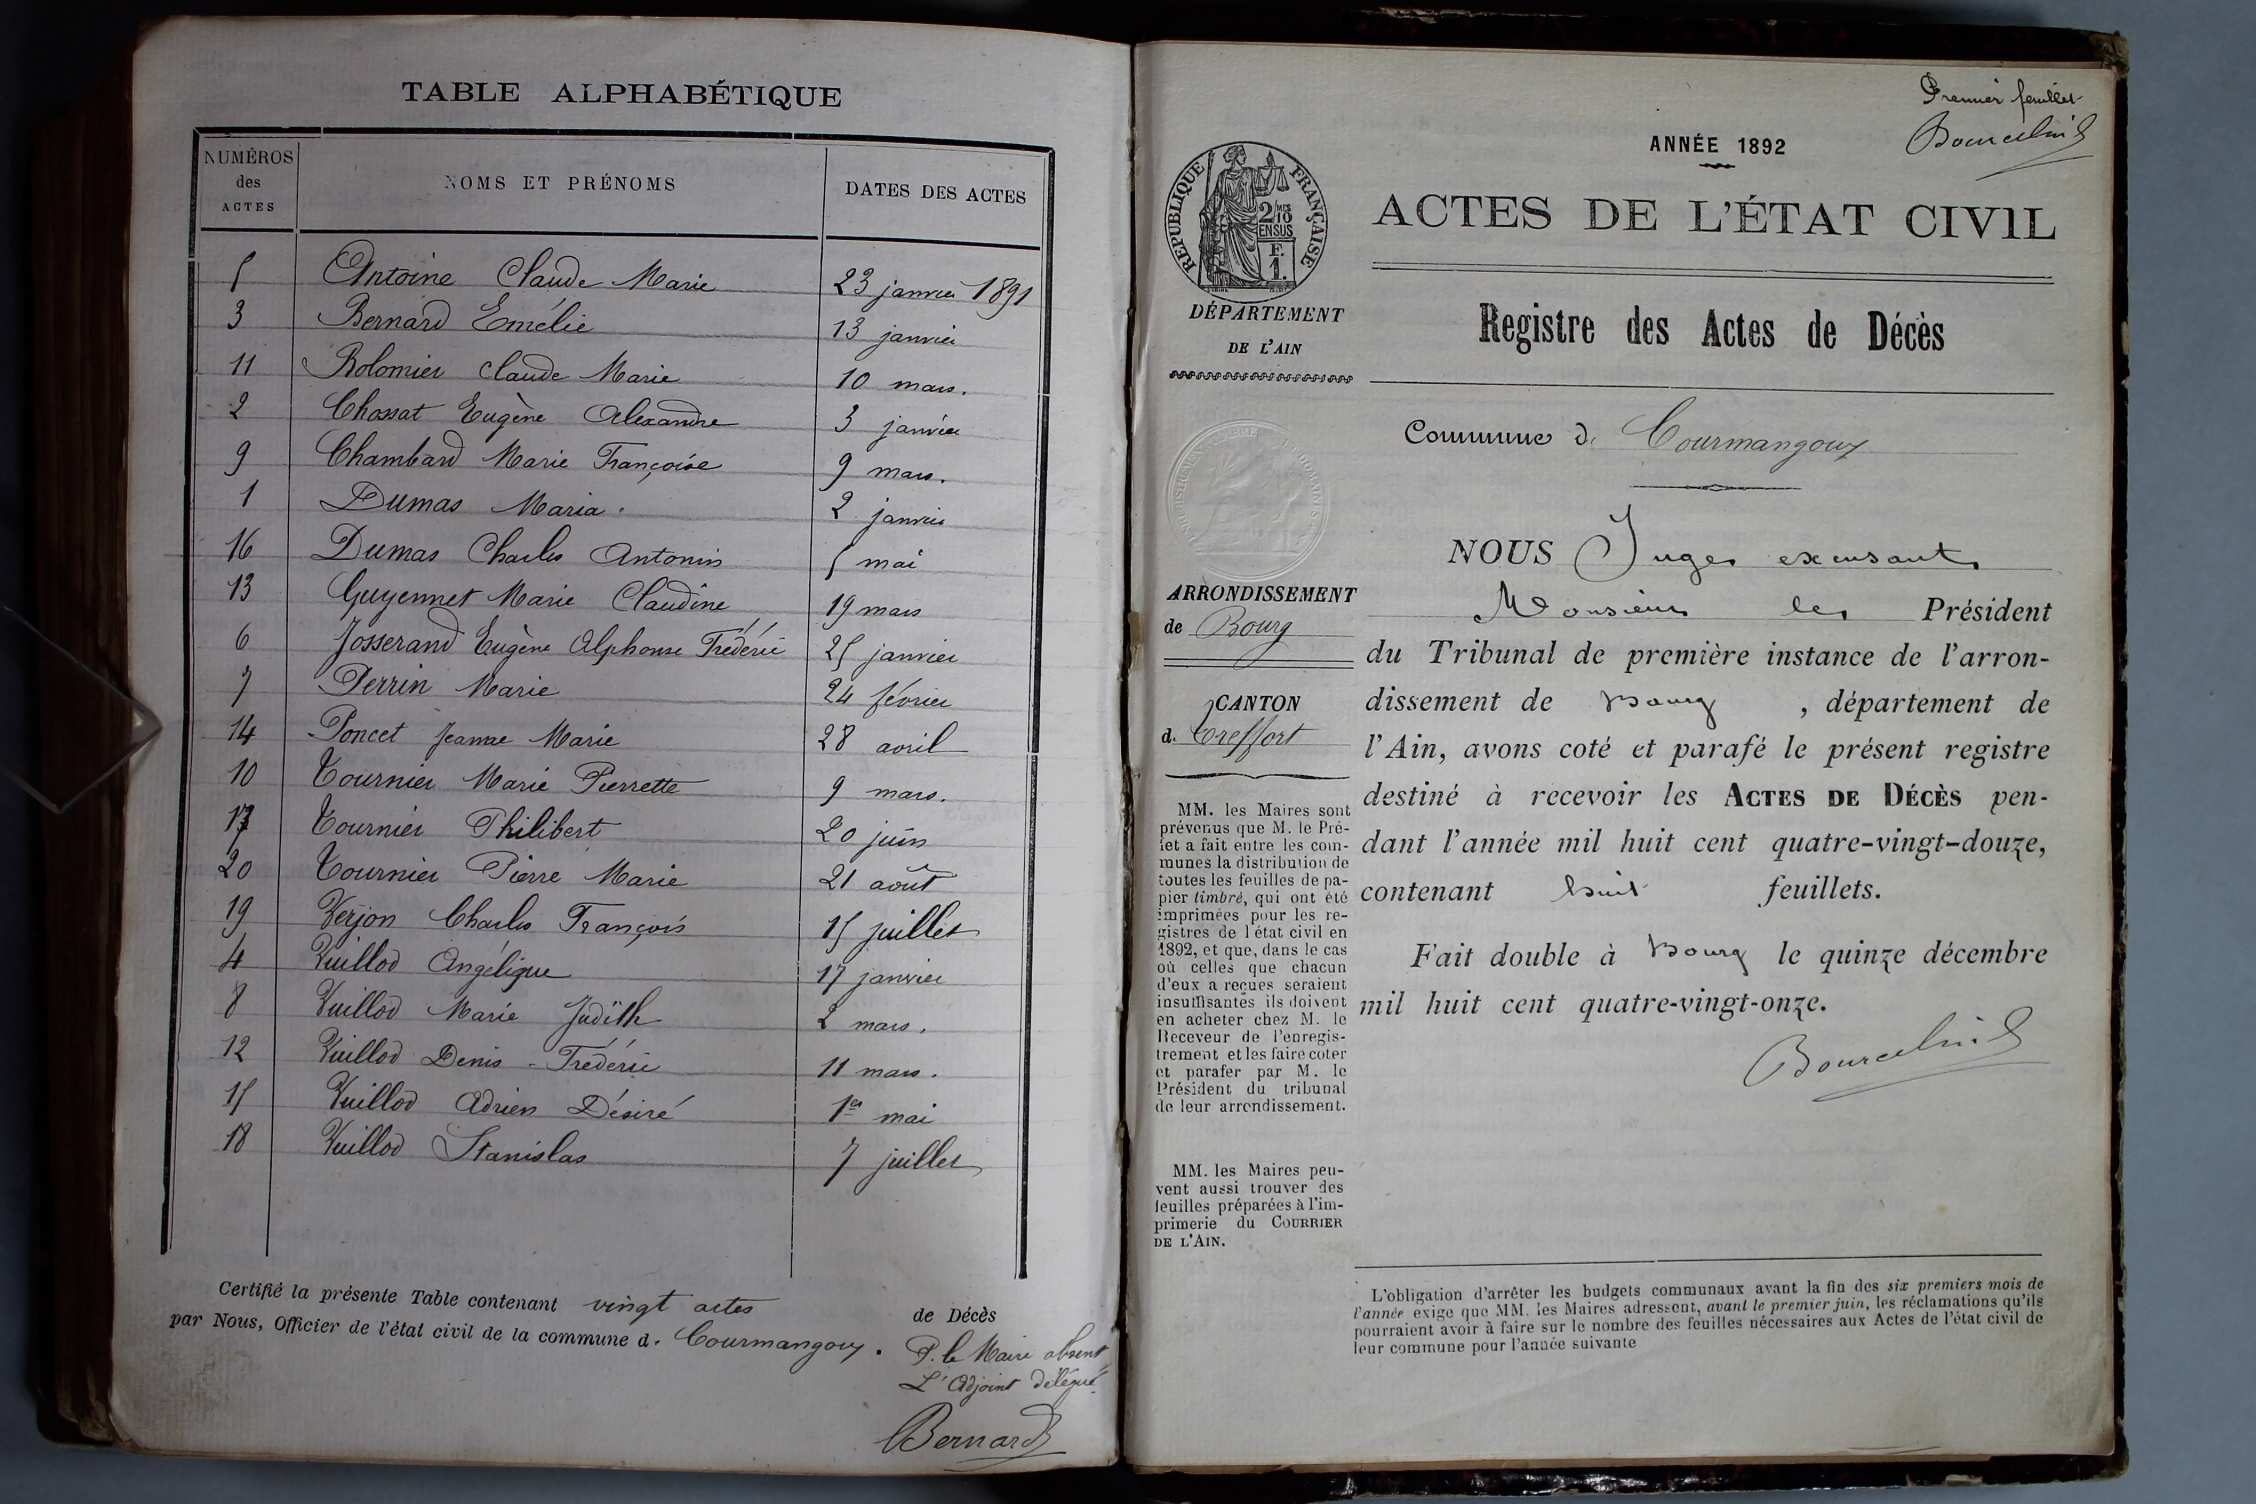 TABLE ALPHABÉTIQUE
NUMÉROS des ACTES NOMS ET PRÉNOMS DATES DES ACTES
5 Antoine Claude Marie 23 janvier 1891
3 Bernard Emélie 13 janvier
11 Bolomier Claude Marie 10 mars.
2 Chossat Eugène Alexandre 3 janvier
9 Chambard Marie Françoise 9 mars.
1 Dumas Maria. 2 janvier
16 Dumas Charles Antonin 5 mai
13 Guyennet Marie Claudine 19 mars
6 Josserand Eugène Alphonse Frédéric 25 janvier
7 Perrin Marie 24 février
14 Poncet Jeanne Marie 28 avril
10 Tournier Marie Pierrette 9 mars.
17 Tournier Philibert 20 juin
20 Tournier Pierre Marie 21 août
19 Verjon Charles François 15 juillet
4 Vuillod Angélique 17 janvier
8 Vuillod Marie Judith 2 mars.
12 Vuillod Denis - Frédéric 11 mars.
15 Vuillod Adrien Désiré 1er mai
18 Vuillod Stanislas 7 juillet
Certifié la présente Table contenant vingt actes de Décès
par Nous, Officier de l'état civil de la commune d. Courmangoux.
P. le Maire absent
L'Adjoint délégué
Bernard
Premier feuillet
ANNÉE 1892
ACTES DE L'ÉTAT CIVIL
RÉPUBLIQUE FRANÇAISE
2/10 MES
EN SUS
F.
1.
DÉPARTEMENT
DE L'AIN
Registre des Actes de Décès
Commune de Courmangoux
ARRONDISSEMENT
de Bourg
CANTON
d. Treffort
MM. les Maires sont
prévenus que M. le Pré-
fet a fait entre les com-
munes la distribution de
toutes les feuilles de pa-
pier timbré, qui ont été
imprimées pour les re-
gistres de l'état civil en
1892, et que, dans le cas
où celles que chacun
d'eux a reçues seraient
insuffisantes ils doivent
en acheter chez M. le
Receveur de l'enregis-
trement et les faire coter
et parafer par M. le
Président du tribunal
de leur arrondissement.
MM. les Maires peu-
vent aussi trouver des
feuilles préparées à l'im-
primerie du COURRIER
DE L'AIN.
NOUS Juge excusant
Monsieur le Président
du Tribunal de première instance de l'arron-
dissement de Bourg, département de
l'Ain, avons coté et parafé le présent registre
destiné à recevoir les ACTES DE DÉCÈS pen-
dant l'année mil huit cent quatre-vingt-douze,
contenant huit feuillets.
Fait double à Bourg le quinze décembre
mil huit cent quatre-vingt-onze.
L'obligation d'arrêter les budgets communaux avant la fin des six premiers mois de
l'année exige que MM. les Maires adressent, avant le premier juin, les réclamations qu'ils
pourraient avoir à faire sur le nombre des feuilles nécessaires aux Actes de l'état civil de
leur commune pour l'année suivante